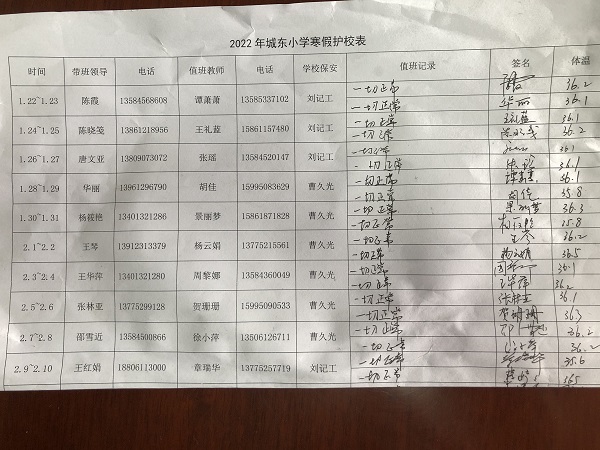 2022 年城东小学寒假护校表
时间 带班领导 电话 值班教师 电话 学校保安 值班记录 签名 体温
1.22~1.23 陈霞 13584568608 谭萧萧 13585337102 刘记工 一切正常 36.2
一切正常 华丽 36.1
1.24~1.25 陈晓笺 13861218956 王礼蓝 15861157480 刘记工 一切正常 王礼蓝 36.1
一切正常 36.2
1.26~1.27 唐文亚 13809073072 张瑶 13584520147 刘记工 一切正常 36.1
一切正常 张瑶 36.1
1.28~1.29 华丽 13961296790 胡佳 15995083629 曹久光 一切正常 36.1
一切正常 35.8
1.30~1.31 杨筱艳 13401321286 景丽梦 15861871828 曹久光 一切正常 景丽梦 36.3
一切正常 35.8
2.1~2.2 王琴 13912313379 杨云娟 13775215561 曹久光 一切正常 王琴 36.2
一切正常 杨云娟 36.5
2.3~2.4 王华萍 13401321280 周黎娜 13584360049 曹久光 一切正常 36.1
一切正常 王华萍 36.2
2.5~2.6 张林亚 13775299128 贺珊珊 15995090533 曹久光 一切正常 张林亚 36.1
一切正常 贺珊珊 363
2.7~2.8 邵雪近 13584500866 徐小萍 13506126711 曹久光 一切正常 36.2
一切正常 36.2
2.9~2.10 王红娟 18806113000 章瑞华 13775257719 刘记工 一切正常 35.6
一切正常 365